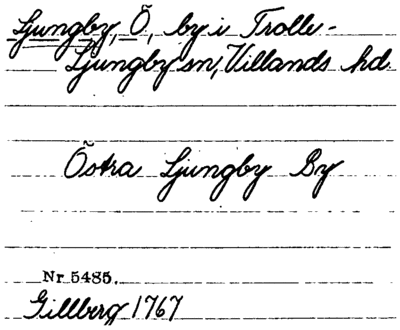 Ljungby, Ö, by i Trolle-
Ljungby sn, Villands hd.
Östra Ljungby By
Nr 5485.
Gillberg 1767